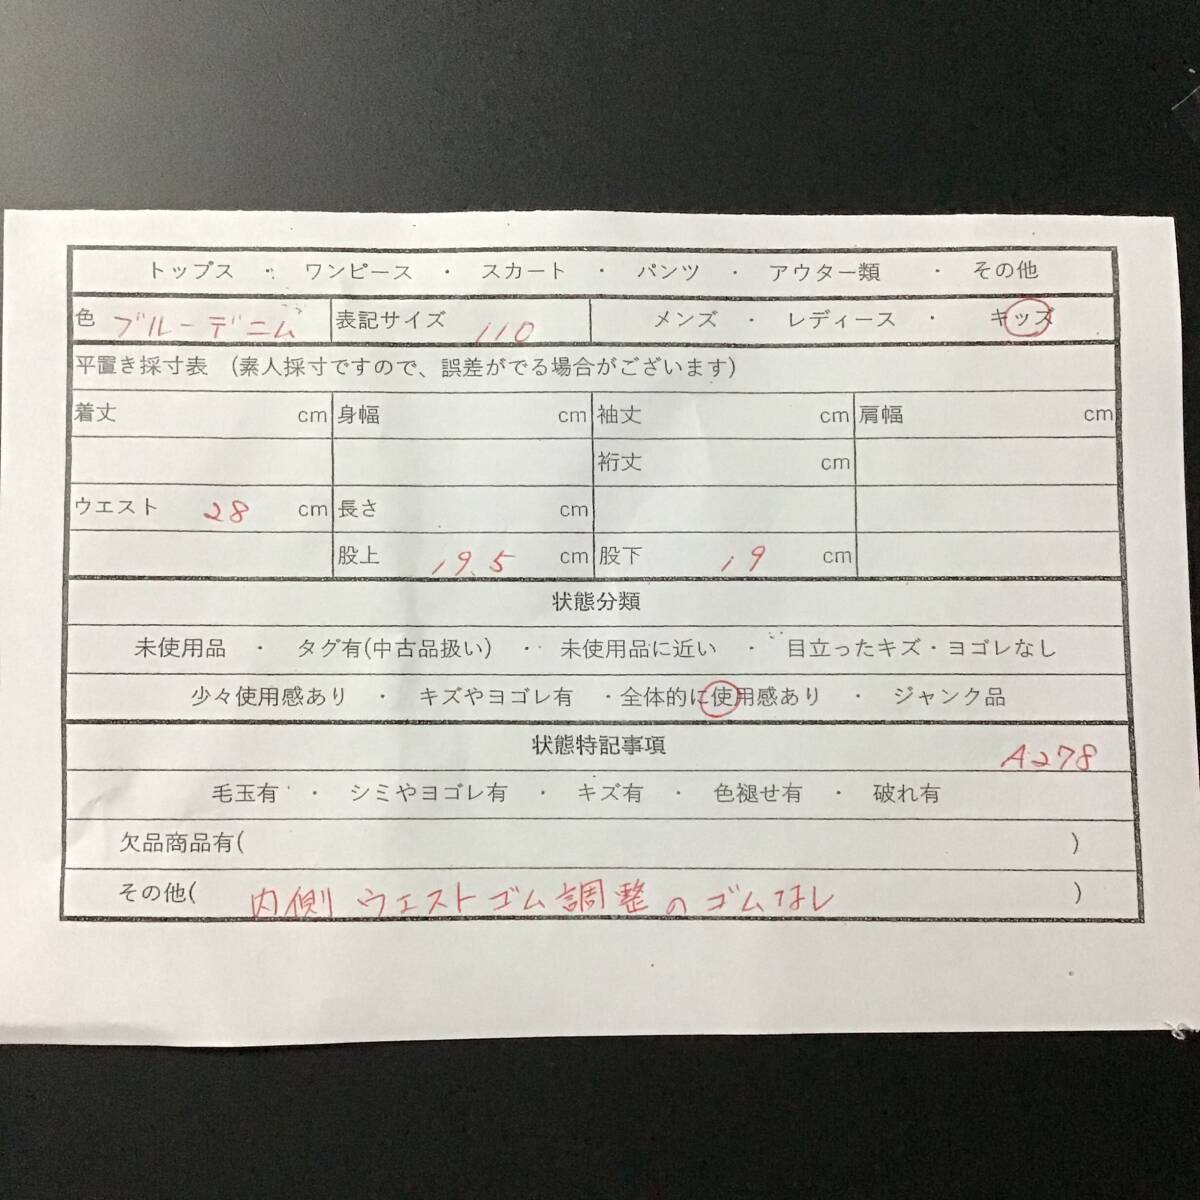 トップス ・ ワンピース ・ スカート ・ パンツ ・ アウター類 ・ その他
色 ブルーデニム 表記サイズ 110 メンズ ・ レディース ・ キッズ
平置き採寸表 (素人採寸ですので、誤差がでる場合がございます)
着丈 cm 身幅 cm 袖丈 cm 肩幅 cm
裄丈 cm
ウエスト 28 cm 長さ cm
股上 19.5 cm 股下 19 cm
状態分類
未使用品 ・ タグ有(中古品扱い) ・ 未使用品に近い ・ 目立ったキズ・ヨゴレなし
少々使用感あり ・ キズやヨゴレ有 ・全体的に使用感あり ・ ジャンク品
状態特記事項 A278
毛玉有 ・ シミやヨゴレ有 ・ キズ有 ・ 色褪せ有 ・ 破れ有
欠品商品有( )
その他( 内側 ウエストゴム調整のゴムなし )